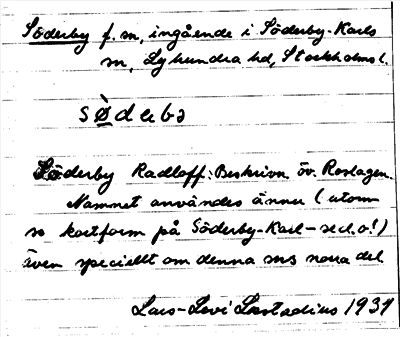 Söderby f. m., ingående i Söderby-Karls
m, Lyhundra hd, Stockholms l.
sø̀deƀə
Söderby Radloff: Beskrivn öv. Roslagen.
Namnet användes ännu (utom
so kortform på Söderby-Karl – se d. o!)
även speciellt om denna sns norra del.
Lars-Levi Læstadius 1937